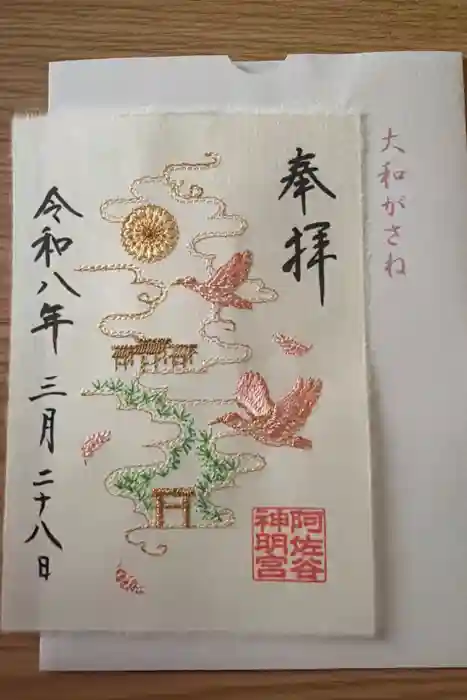 奉拝
令和八年 三月 二十八日
阿佐谷
神明宮
大和がさね